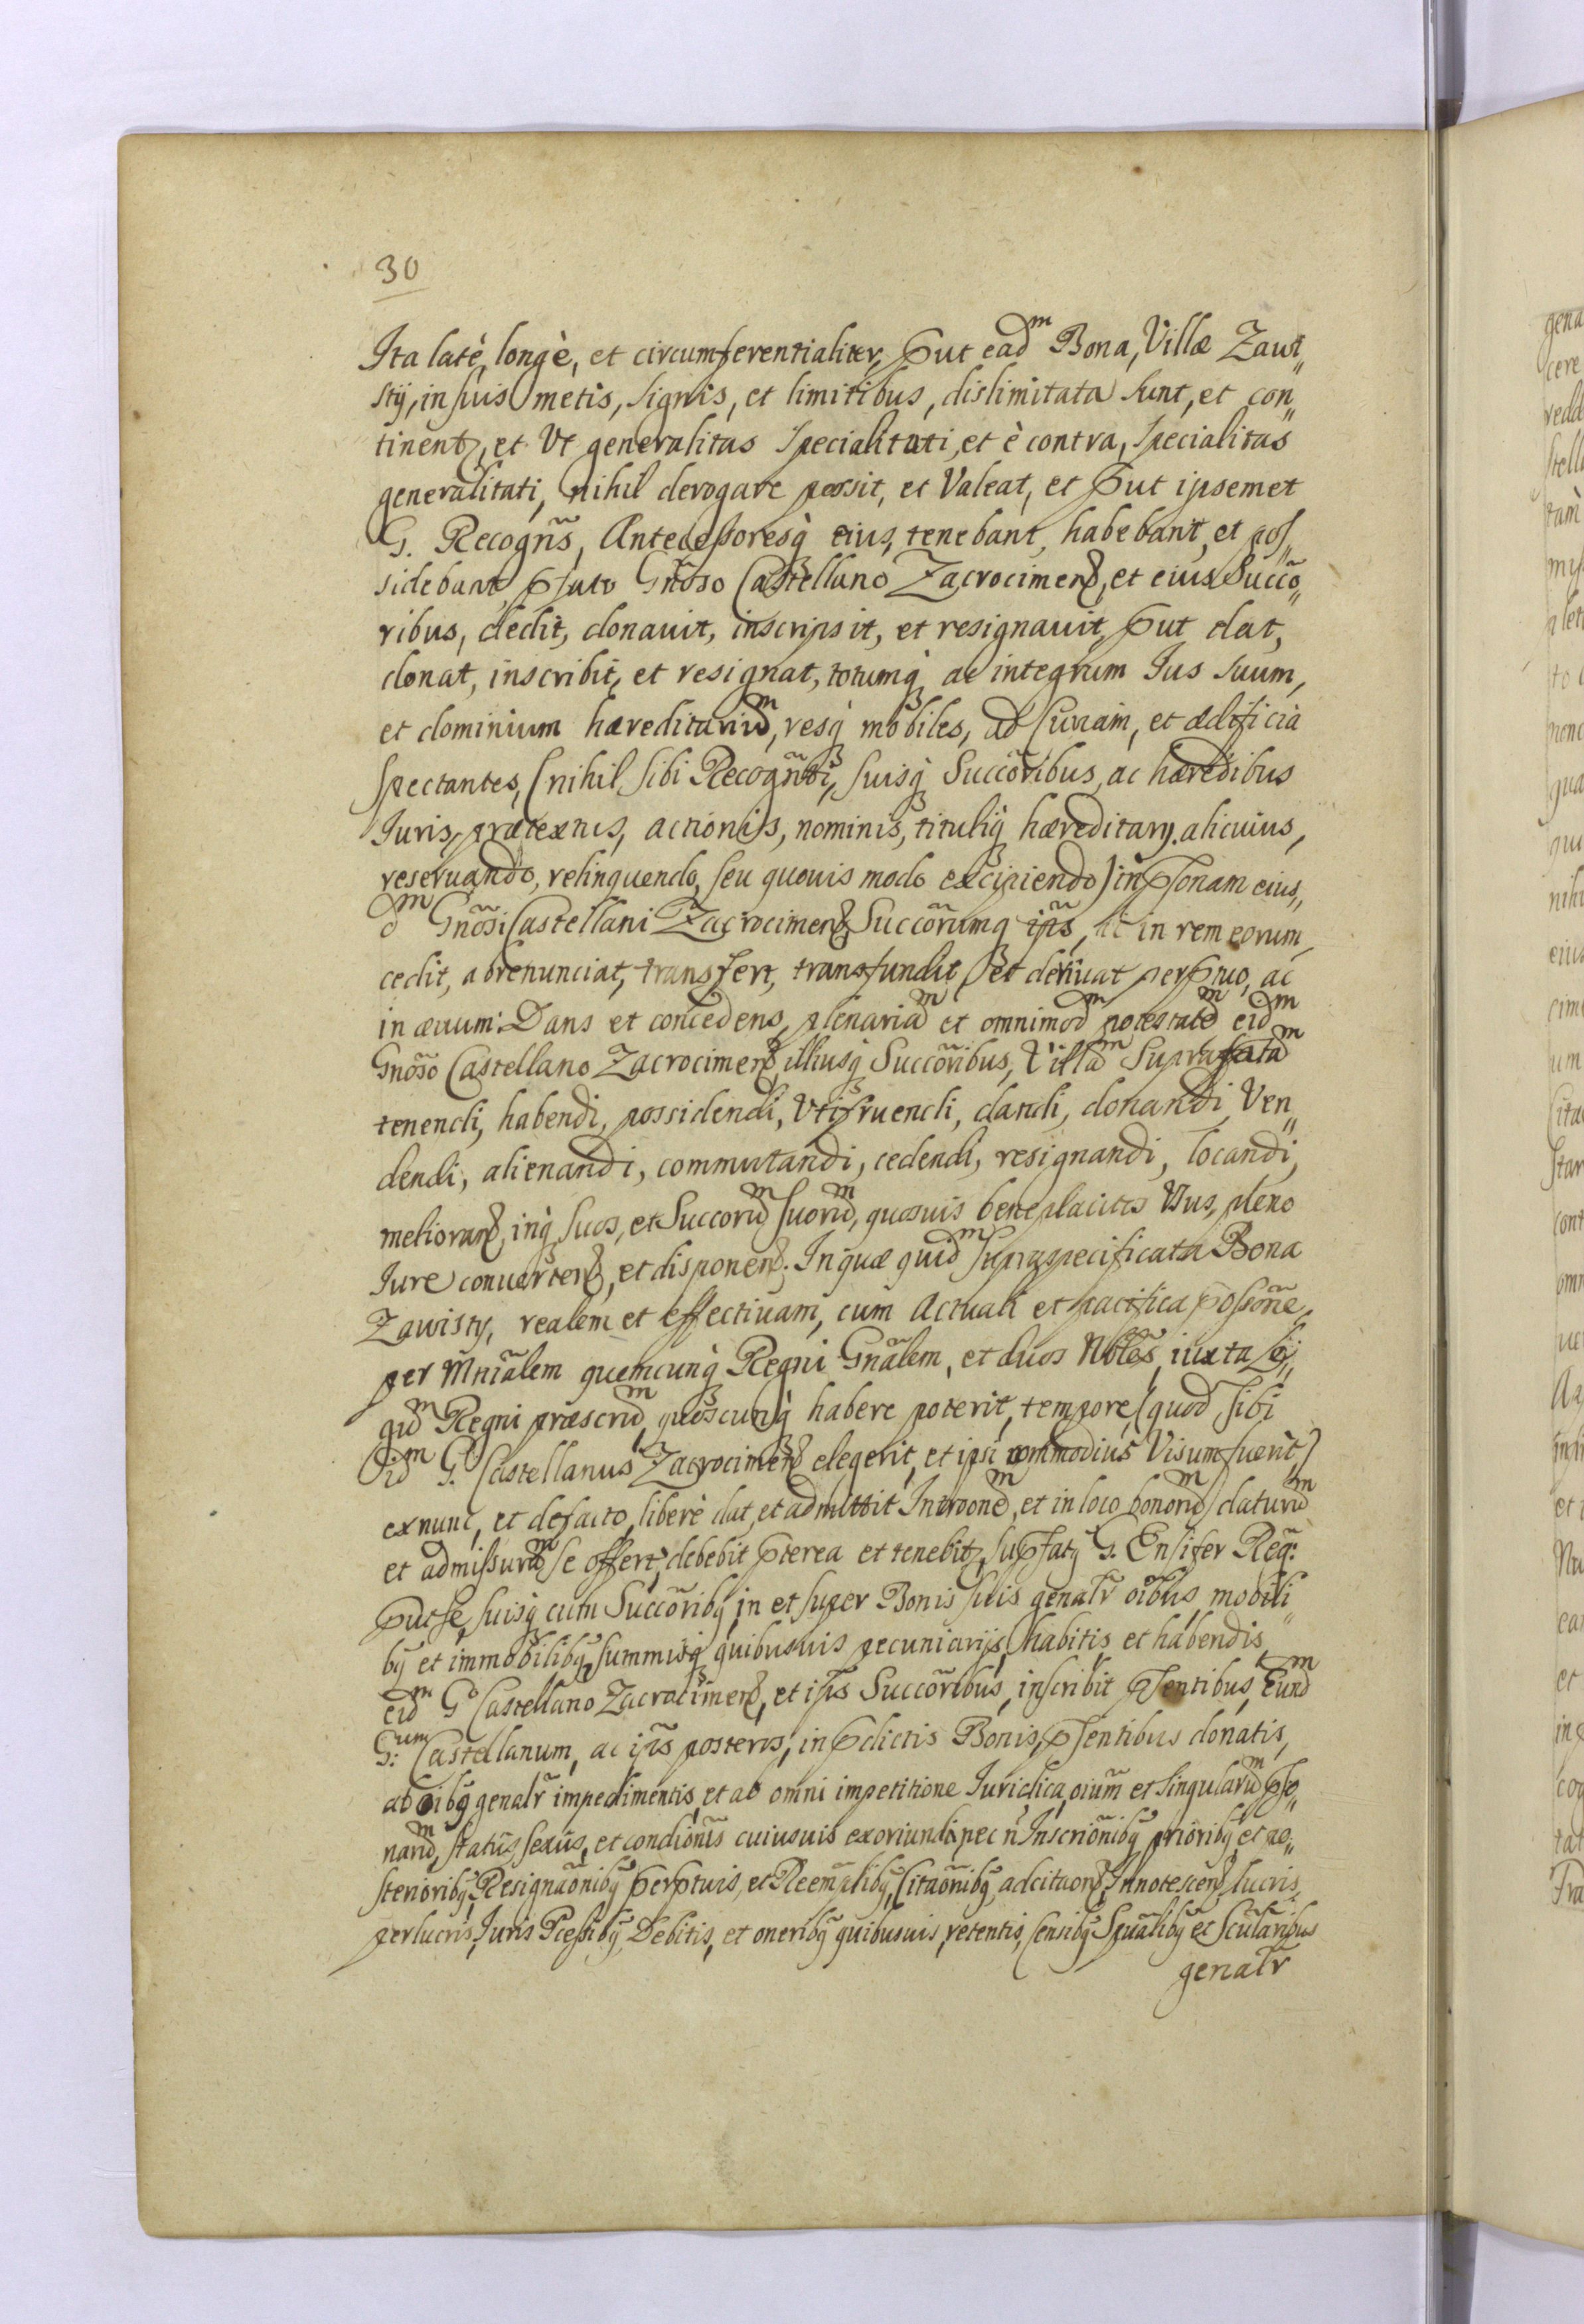 30
Ita latè, longè, et circumferentialiter, ꝓut ead̃ᵐ Bona, Villæ Zawi„
stÿ, in suis metis, signis, et limitibus, dislimitata sunt, et con„
tinentꝫ, et Vt generalitas specialitati, et è contra, specialitas
generalitati, nihil derogare possit, et Valeat, et ꝓut ipsemet
G. Recogñs, Antecessoresqꝫ eius, tenebant, habebant, et pos„
sidebant, pfato Gnõso Castellano Zacrocimenꝭ, et eius Succõ„
ribus, dedit, donauit, inscripsit, et resignauit, ꝓut dat,
donat, inscribit, et resignat, totumqꝫ ac integrum Ius suum,
et dominium hæreditariuᵐ, resqꝫ mobiles, ad Curiam, et ædificia
spectantes, (nihil sibi Recogñti, suisqꝫ Succõribus, ac hæredibus
Iuris, prætextus, actionis, nominis, tituliqꝫ hæreditarÿ alicuius,
reseruando, relinquendo, seu quouis modo excipiendo) in Psonam eius„
dᵐ Gnõsi Castellani Zacrocimenꝭ Succõrumqꝫ ip̃s, ac in rem eorum
cedit, abrenunciat, transfert, transfundit, et deriuat perptuo, ac
in æuum: Dans et concedens, plenariaᵐ et omnimodᵐ potestatẽᵐ eidᵐ
Gnõso Castellano Zacrocimenꝭ, illiusqꝫ Succõribus, Villaᵐ Suprafataᵐ
tenendi, habendi, possidendi, Vtifruendi, dandi, donandi, Ven„
dendi, alienandi, commutandi, cedendi, resignandi, locandi,
meliorandꝭ, inqꝫ suos, et Succoruᵐ suoruᵐ, quosuis beneplacitos Vsus, pleno
Iure conuertendꝭ, et disponendꝭ. In quæ quidᵐ supraspecificata Bona
Zawisty, realem et effectiuam, cum Actuali et pacifica possõne,
per Mniãlem quemcunqꝫ Regni Gnãlem, et duos Nobles, iuxta Le„
guᵐ Regni præscrituᵐ, quoscunqꝫ habere poterit, tempore (quod sibi
idᵐ G. Castellanus Zacrocimenꝭ elegerit, et ipsi commodius Visum fuerit)
exnunc, et defacto, liberè dat, et admittit Intronẽᵐ, et in loco bonoruᵐ daturuᵐ
et admissuruᵐ se offert, debebit pterea et tenebitꝫ, supfatꝰ G. Ensifer Reg̃:
ꝓut se, suisqꝫ cum Succõribꝰ, in et super Bonis suis genalr̃ oĩbus mobili„
bꝰ et immobilibꝰ, summisqꝫ quibusuis pecuniarijs, habitis et habendis
eidᵐ Gᵒ Castellano Zacrocimenꝭ, et ip̃s Succõribus, inscribit psentibus, Eundᵐ
G:ᵘᵐ Castellanum, ac ip̃s posteros, in pdictis Bonis, psentibus donatis,
ab oĩbꝰ genalr̃ impedimentis, et ab omni impetitione Iuridica, oĩum et singularuᵐ pso„
naruᵐ, statûs, sexûs, et condiõnis cuiusuis exoriundi, nec ñ Inscriõnibꝰ prioribꝰ et po„
sterioribꝰ, Resignaõnibꝰ perptuis, et Reemp̃libꝰ, Citaõnibꝰ, adcitaonꝭ, Innotescenꝭ, lucris,
perlucris, Iuris Pcessibꝰ, Debitis, et oneribꝰ quibusuis, retentis, censibꝰ Spuãlibꝰ et Scũlaribus
genalr̃